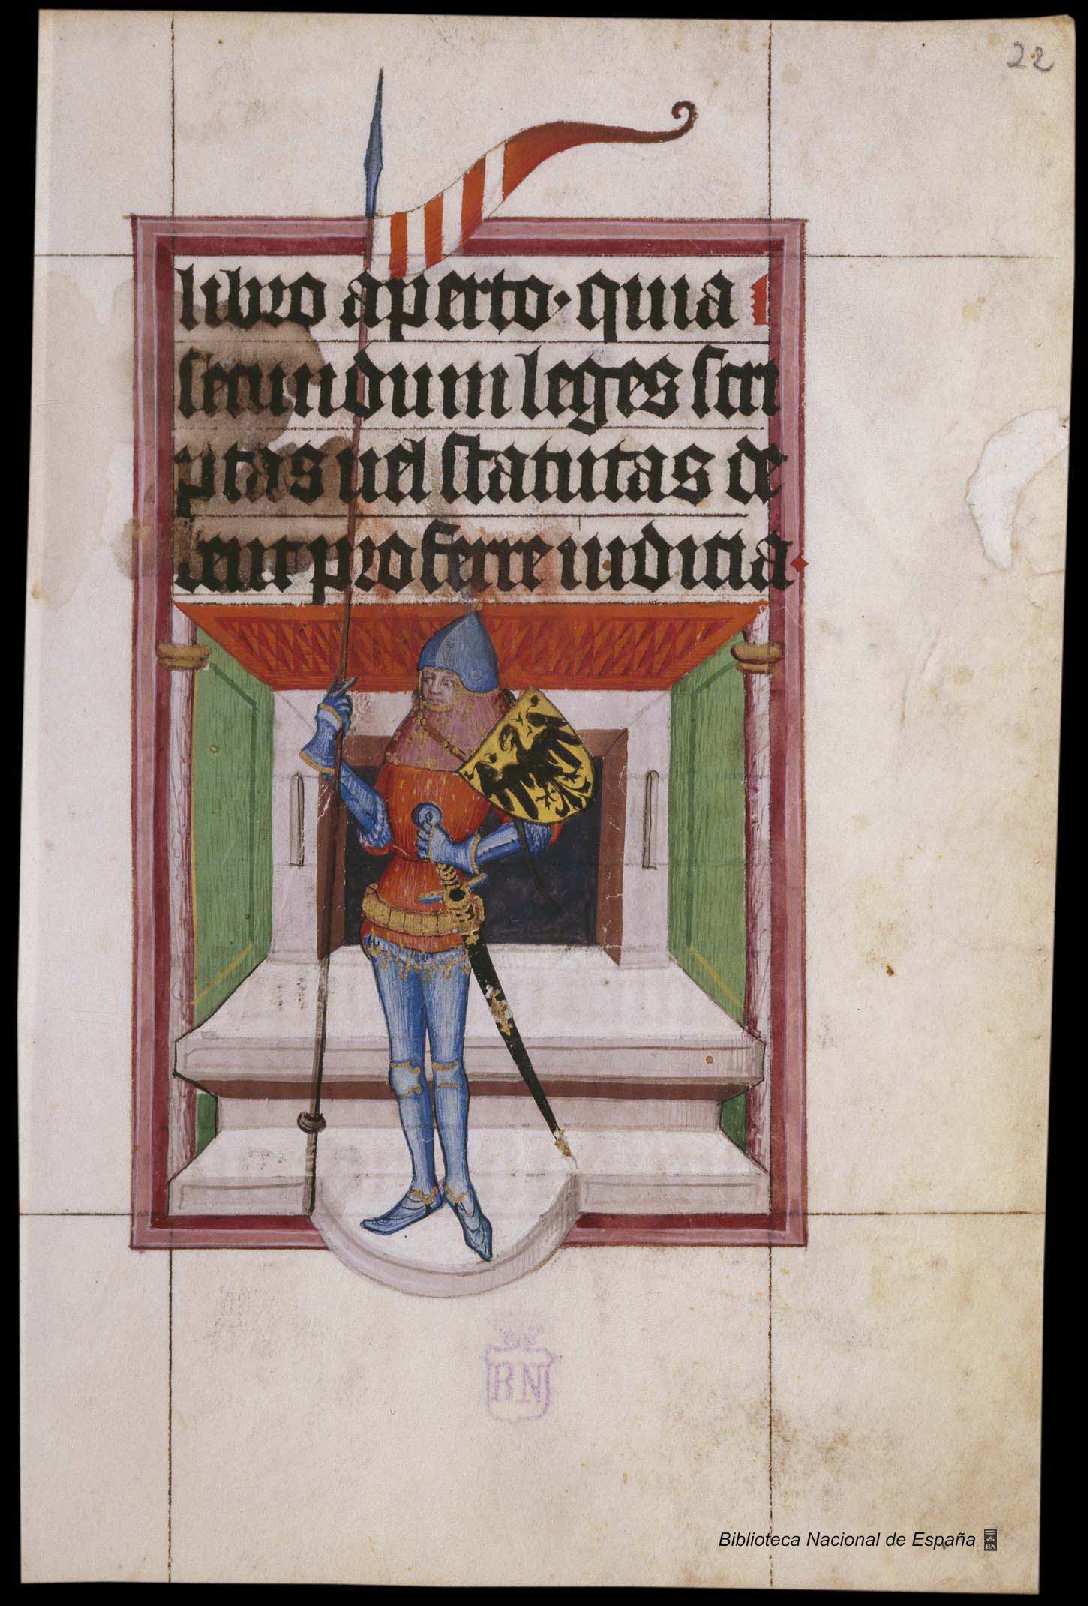 22
libro aperto · quia
secundum leges scri
ptas uel statutas de
bent proferre iudicia
BN
Biblioteca Nacional de España